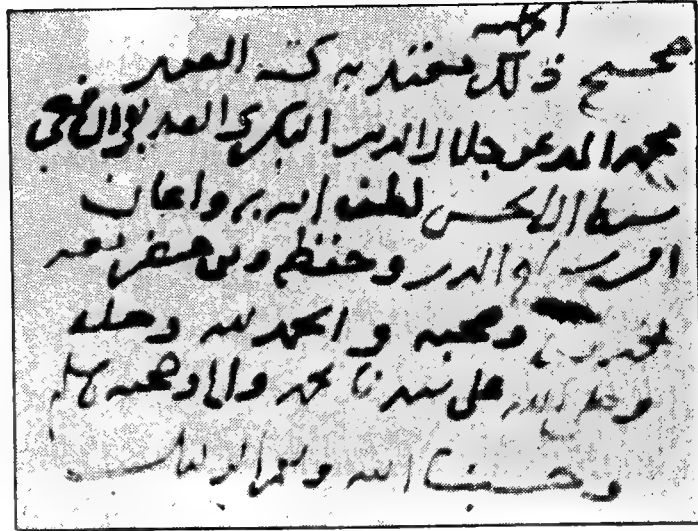 الحمد لله
صحيح ذلك كتبه الفقير
محمد المدعو جلال الدين البكري الصديقي الشافعي
سبط ال الحسن لطف الله به واعان
الدين وحفظ
وصحبه والحمد لله وحده
وصلى الله على سيدنا محمد واله وصحبه وسلم
وحسبنا الله ونعم الوكيل